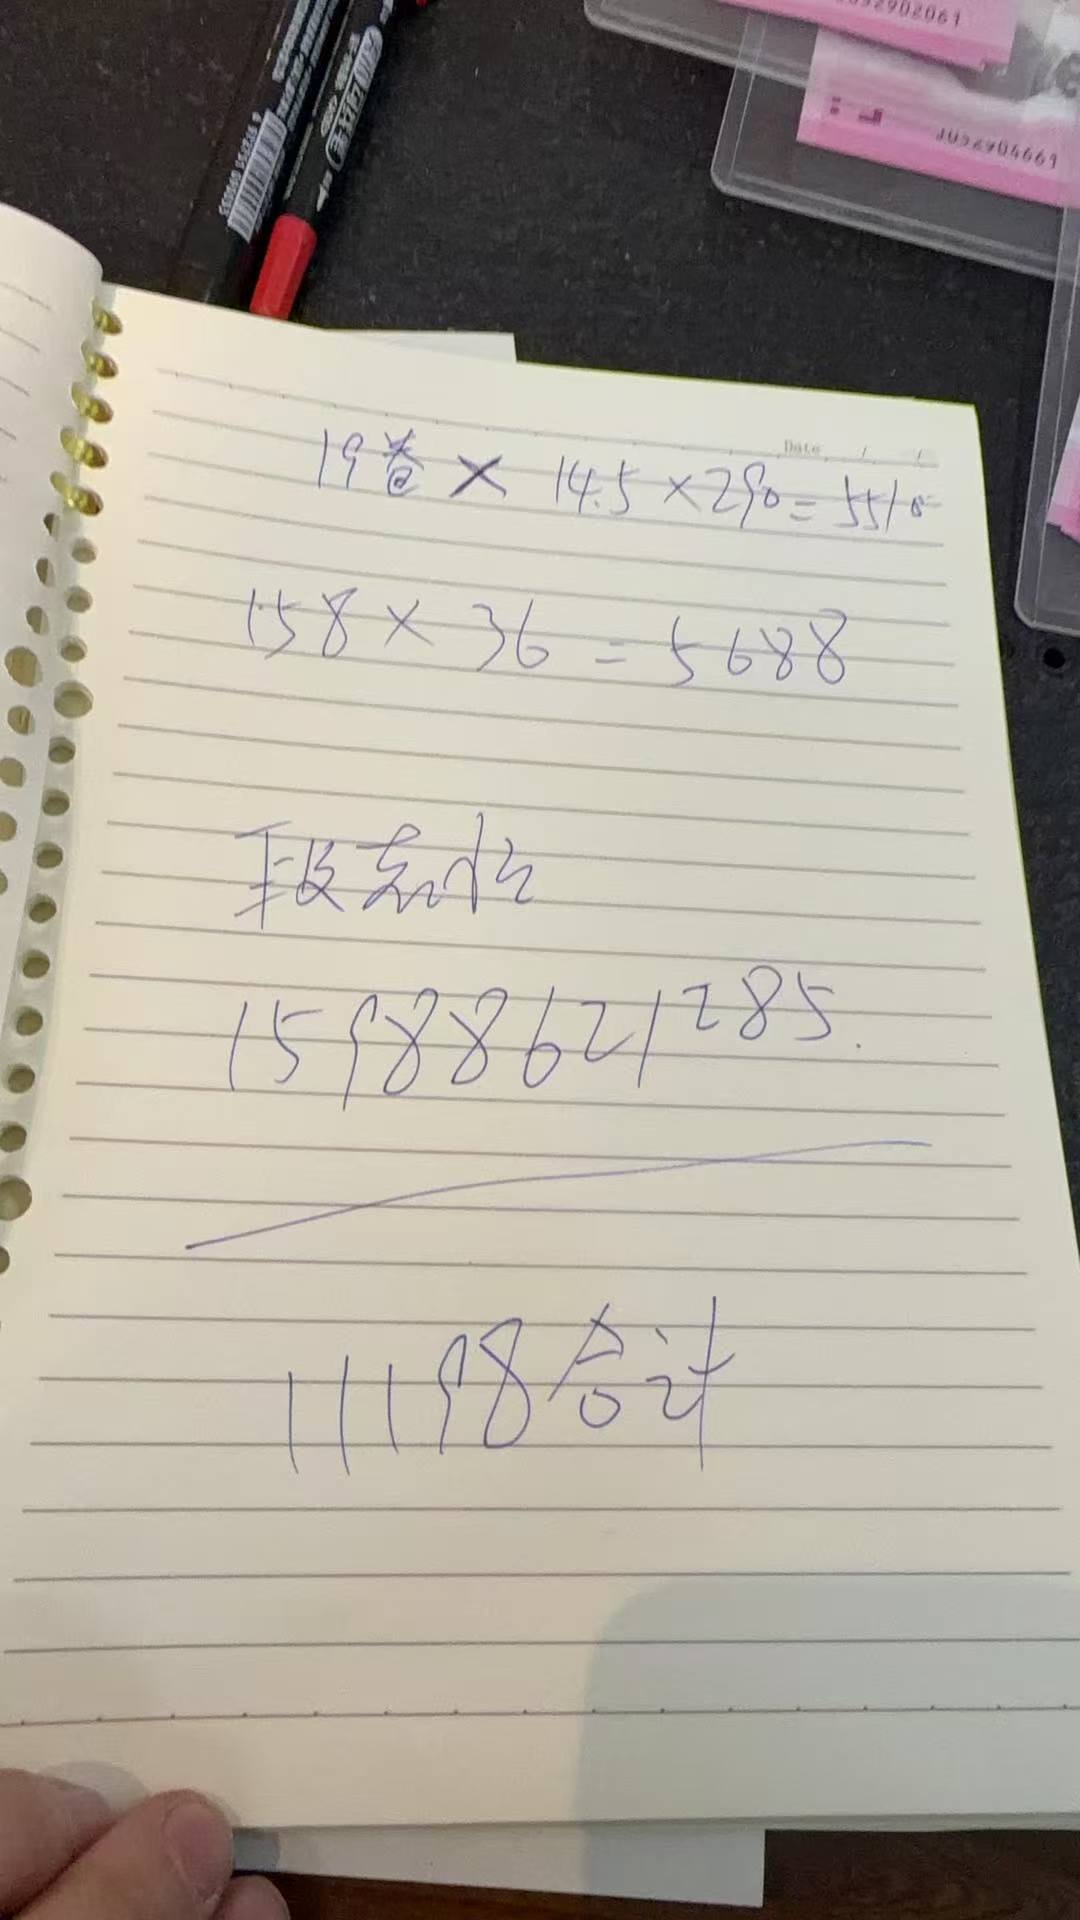 J052902061
J052904669
Date
19卷 × 14.5 × 290 = 5510
158 × 36 = 5688
15988621285.
11198合计